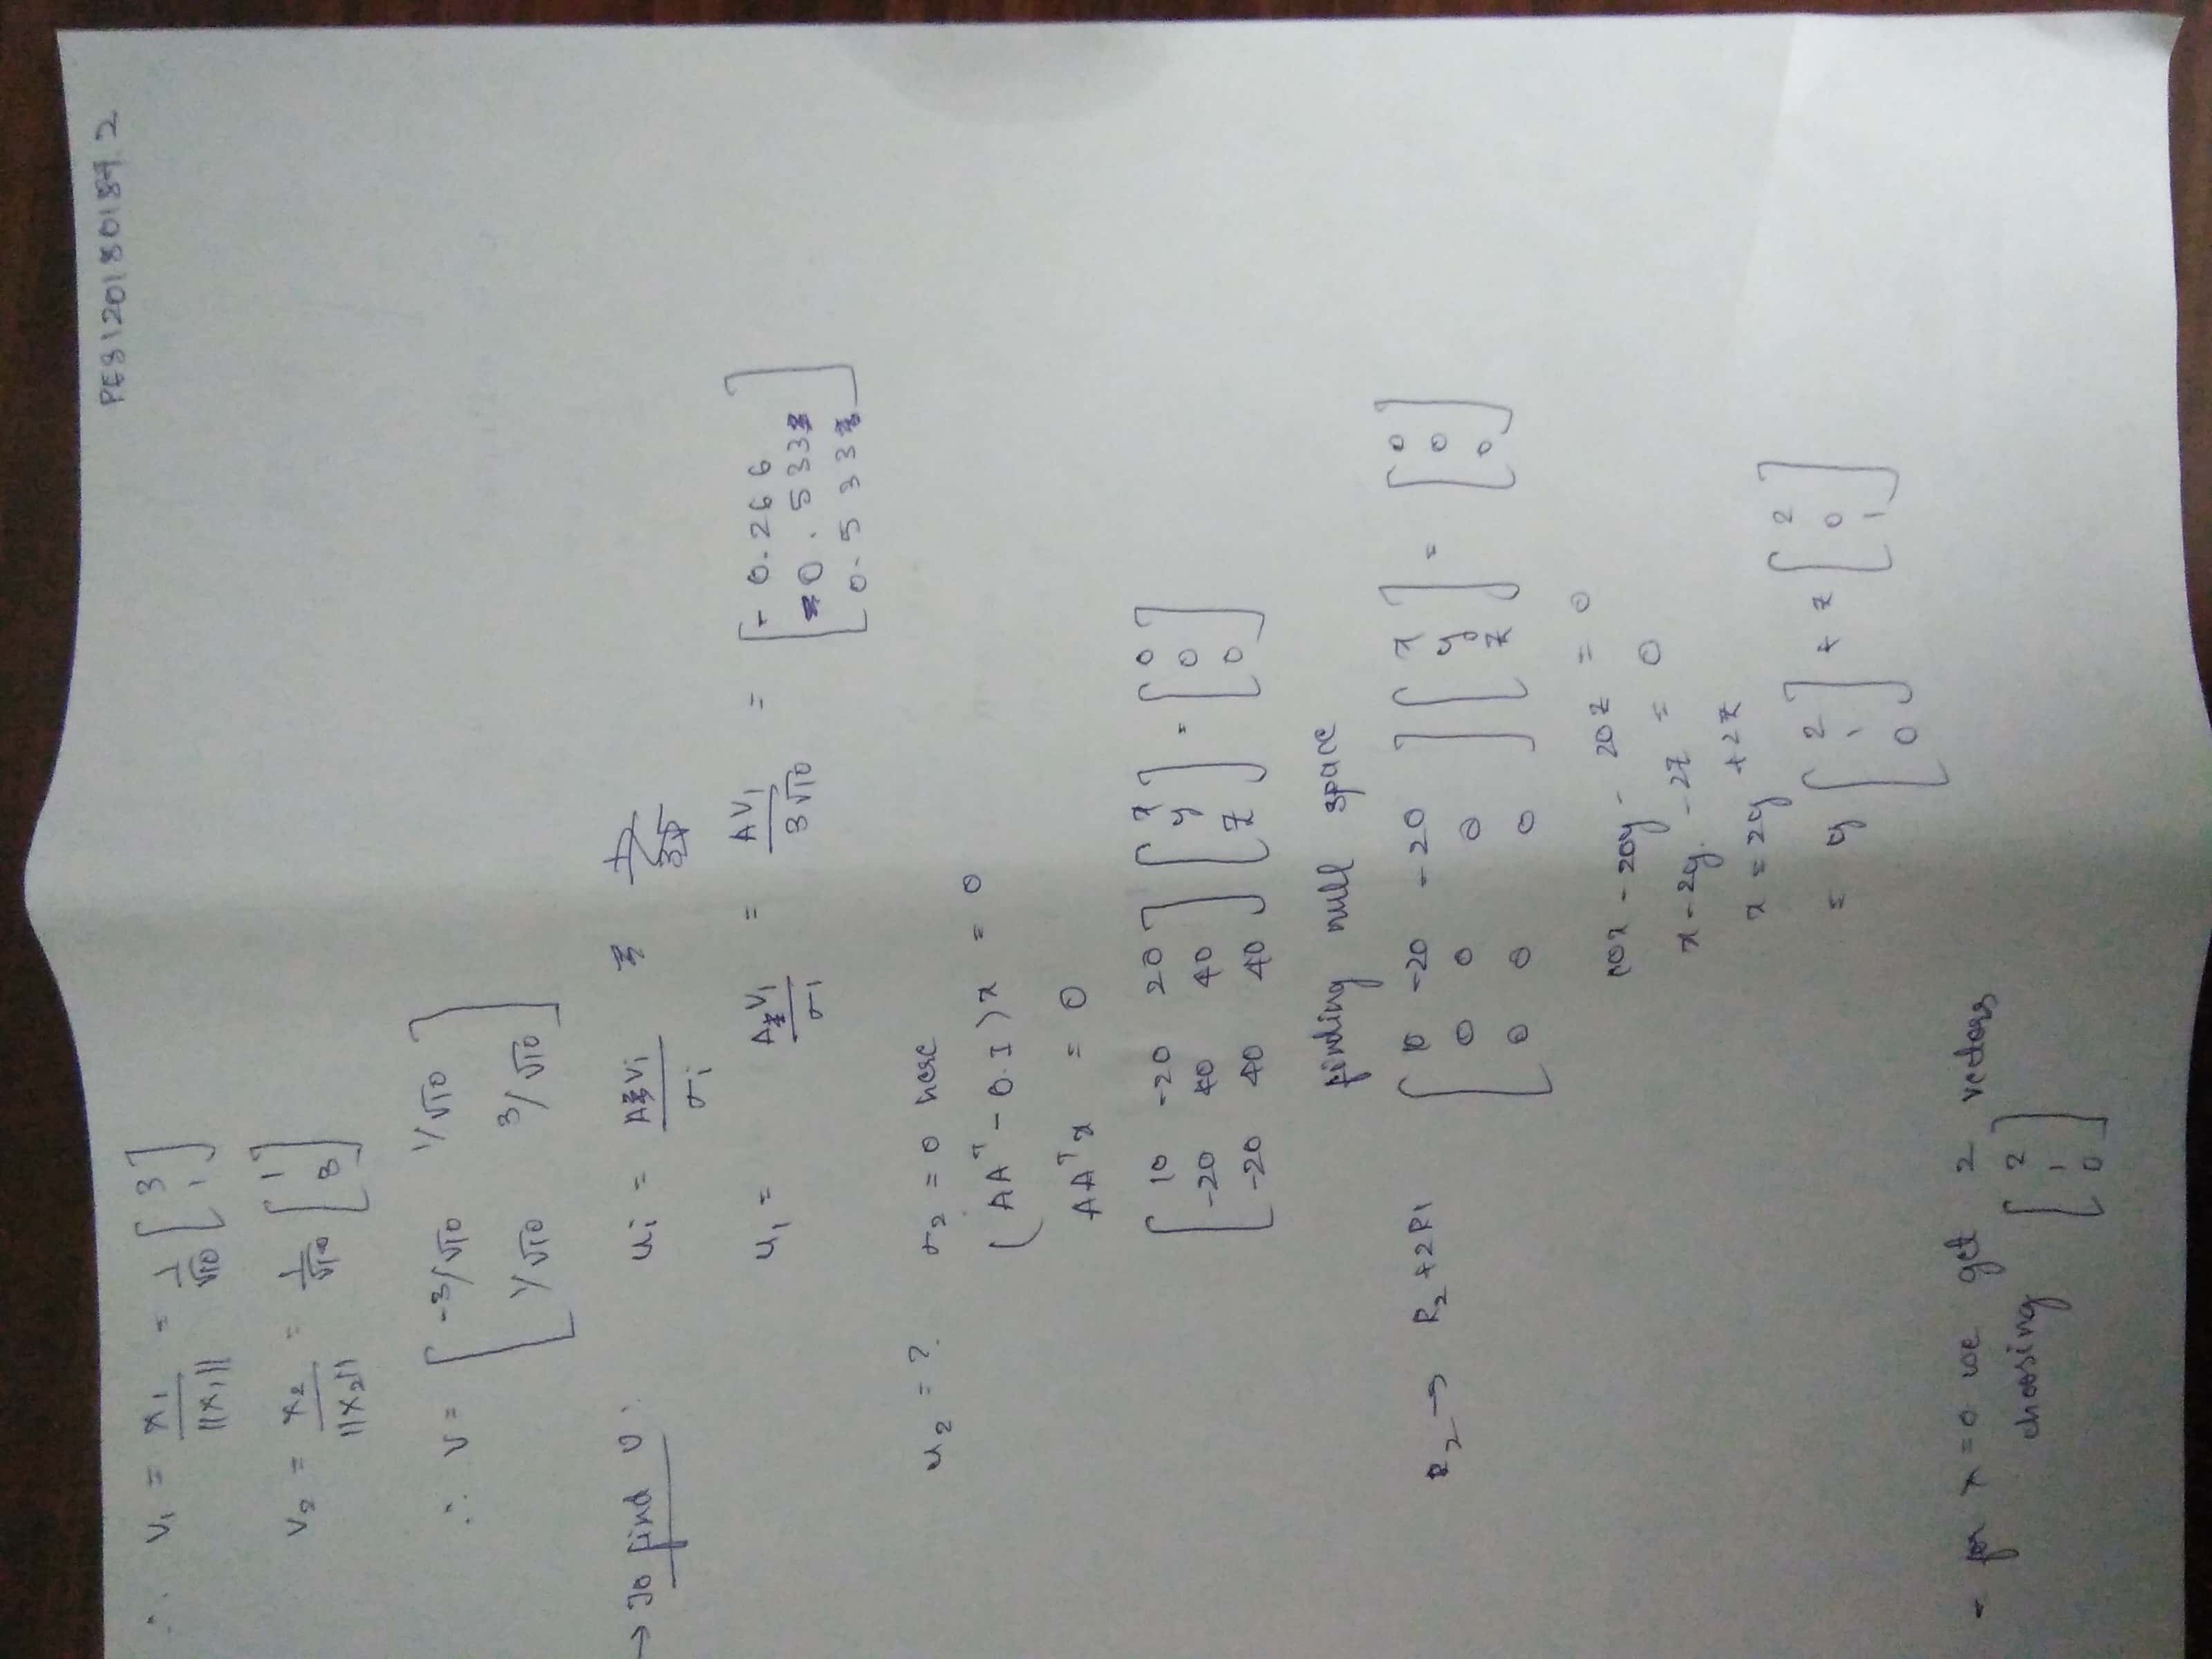 PES1201801842
∴ V₁ = x₁ / ||x₁|| = 1/√10 [3 1]
V₂ = x₂ / ||x₂|| = 1/√10 [1 3]
∴ V = [-3/√10 1/√10
1/√10 3/√10]
→ To find U:
uᵢ = AVᵢ / σᵢ
u₁ = AV₁ / σ₁ = AV₁ / 3√10 = [-0.266 0.533 0.533]
u₂ = ? σ₂ = 0 here
(AAᵀ - 0.I)x = 0
AAᵀx = 0
[10 -20 20
-20 40 40
-20 40 40] [x y z] = [0 0 0]
finding null space
R₂ → R₂ + 2R1 [10 -20 -20
0 0 0
0 0 0] [x y z] = [0 0 0]
10x - 20y - 20z = 0
x - 2y - 2z = 0
x = 2y + 2z
= y [2 1 0] + z [2 0 1]
- for λ = 0 we get 2 vectors
choosing [2 1 0]